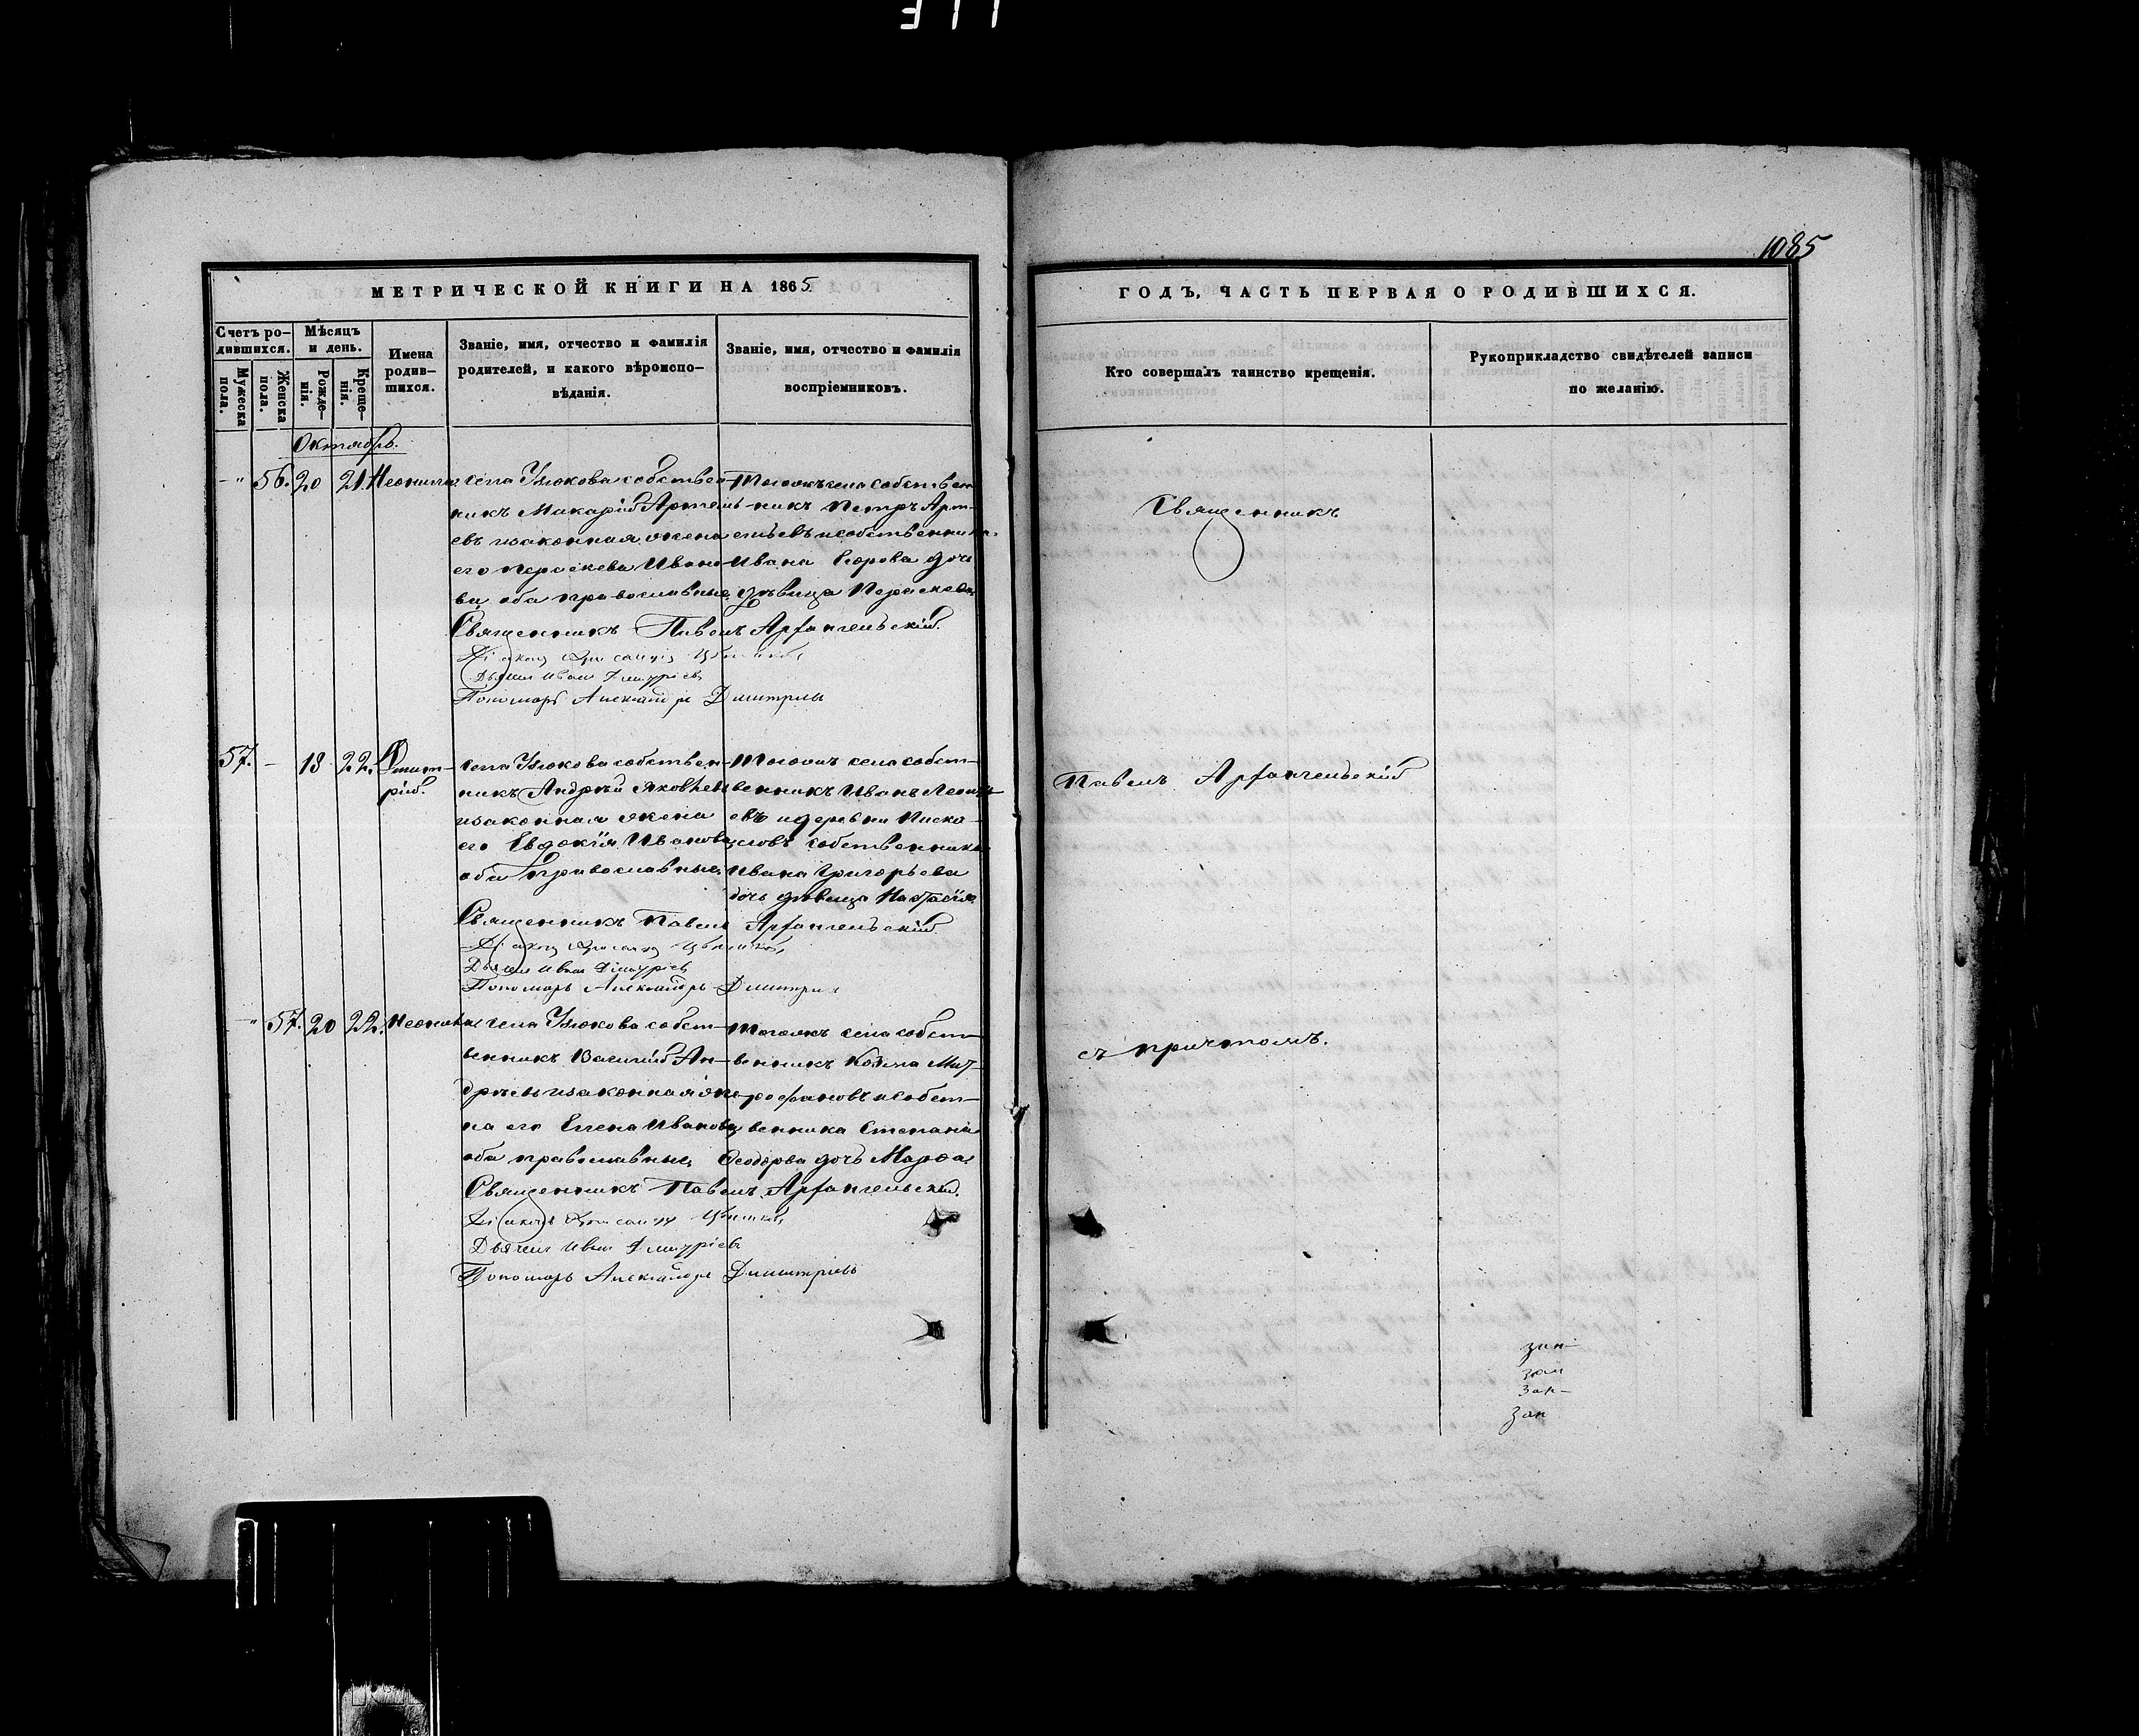 1085
МЕТРИЧЕСКОЙ КНИГИ НА 1865
ГОДЪ, ЧАСТЬ ПЕРВАЯ О РОДИВШИХСЯ.
Счетъ ро-
дившихся.
Мужеска
пола.
Женска
пола.
Мѣсяцъ
и день.
Рожде-
нія.
Креще-
нія.
Имена
родив-
шихся.
Званіе, имя, отчество и фамилія
родителей, и какого вѣроиспо-
вѣданія.
Званіе, имя, отчество и фамилія
воспріемниковъ.
Кто совершалъ таинство крещенія.
Рукоприкладство свидѣтелей записи
по желанію.
Октябрь.
56. 20 21. Неонилла
села Узюкова собствен-
никъ Макарій Артемь-
евъ изаконная жена
его Пераскева Ивано-
ва, оба православные,
Тогожъ села собствен-
никъ Петръ Арт-
емьевъ и собственника
Ивана Егорова дочь
дѣвица Пераскева
Священникъ Павелъ Архангельскій.
Дьячекъ Иванъ Димитріевъ
Пономарь Александръ Димитріевъ
57. - 18 22. Дмит-
рій.
села Узюкова собствен-
никъ Андрей Яковлевъ
изаконная жена
его Евдокія Иванова
оба православные,
Тогожъ села собст-
венникъ Иванъ
евъ и деревни Писка-
ловъ собственника
Ивана Григорьева
дочь дѣвица Настасія.
Священникъ Павелъ Архангельскій.
Дьячекъ Иванъ Димитріевъ
Пономарь Александръ Димитріевъ
57. 20 22. Неонилла
села Узюкова собст-
венникъ Василій Ан-
дреевъ изаконная же-
на его Елена Иванова
оба православные,
Тогожъ села собст-
венникъ Козма Мит-
рофановъ и собст-
венника Степана
Ѳеодорова дочь Марѳа
Священникъ Павелъ Архангельскій.
Дьячекъ Иванъ Димитріевъ
Пономарь Александръ Димитріевъ
Священникъ
Павелъ Архангельскій
съ причтомъ.